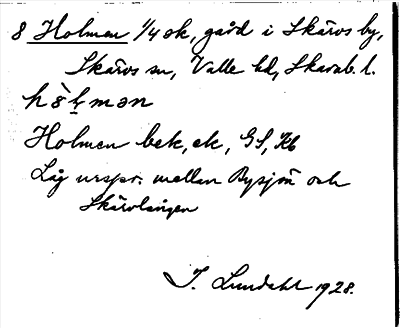 8 Holmen 1/4 ek, gård i Skärvs by,
Skärvs sn, Valle hd, Skarab. l.
Holmen bek, ek, GS, Kb
Låg urspr. mellan Bysjön och
Skärvlången
J. Lundahl 1928.